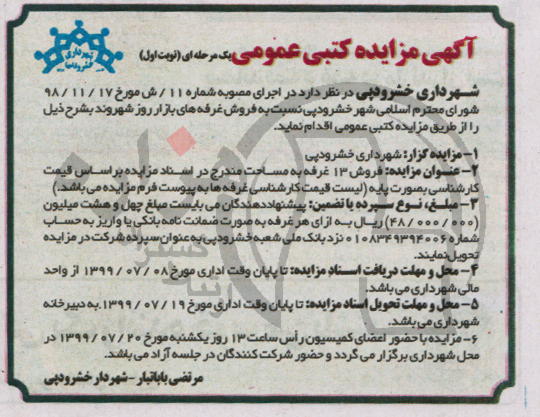 آگهی مزایده کتبی عمومی یک مرحله ای (نوبت اول)
شهرداری
خسرودپی
شهرداری خشرودپی در نظر دارد در اجرای مصوبه شماره ۱۱/ش مورخ ۹۸/۱۱/۱۷
شورای محترم اسلامی شهر خشرودپی نسبت به فروش غرفه های بازار روز شهروند بشرح ذیل
را از طریق مزایده کتبی عمومی اقدام نماید.
۱- مزایده گزار: شهرداری خشرودپی
۲- عنوان مزایده: فروش ۱۳ غرفه به مساحت مندرج در اسناد مزایده براساس قیمت
کارشناسی بصورت پایه (لیست قیمت کارشناسی غرفه ها به پیوست فرم مزایده می باشد.)
۳- مبلغ، نوع سپرده یا تضمین: پیشنهاددهندگان می بایست مبلغ چهل و هشت میلیون
(۴۸/۰۰۰/۰۰۰) ریال به ازای هر غرفه به صورت ضمانت نامه بانکی یا واریز به حساب
شماره ۰۱۰۸۳۴۹۳۹۴۰۰۶ نزد بانک ملی شعبه خشرودپی به عنوان سپرده شرکت در مزایده
تحویل نمایند.
۴- محل و مهلت دریافت اسناد مزایده: تا پایان وقت اداری مورخ ۱۳۹۹/۰۷/۰۸ از واحد
مالی شهرداری می باشد.
۵- محل و مهلت تحویل اسناد مزایده: تا پایان وقت اداری مورخ ۱۳۹۹/۰۷/۱۹. به دبیرخانه
شهرداری می باشد.
۶- مزایده با حضور اعضای کمیسیون رأس ساعت ۱۳ روز یکشنبه مورخ ۱۳۹۹/۰۷/۲۰ در
محل شهرداری برگزار می گردد و حضور شرکت کنندگان در جلسه آزاد می باشد.
مرتضی باباتبار - شهردار خشرودپی